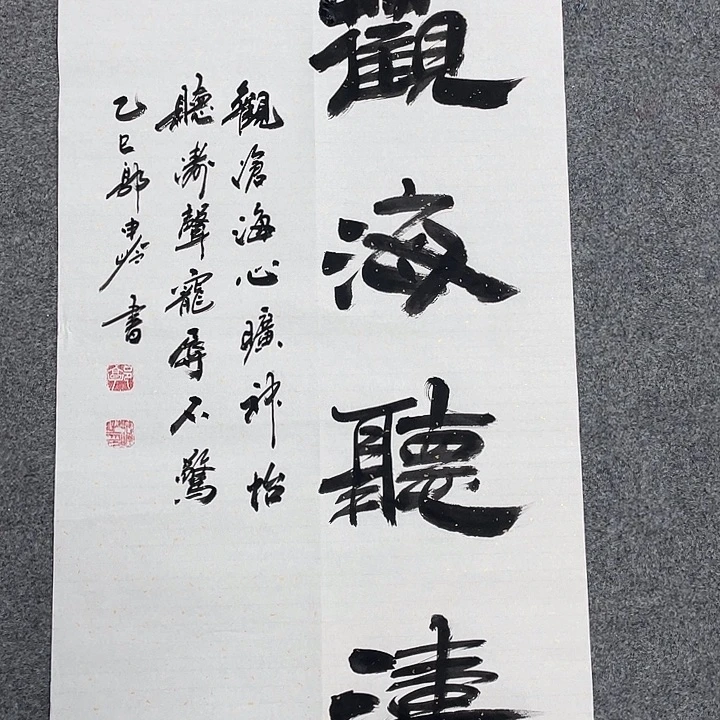 觀海聽濤
觀滄海心曠神怡
聽濤聲寵辱不驚
乙巳申書